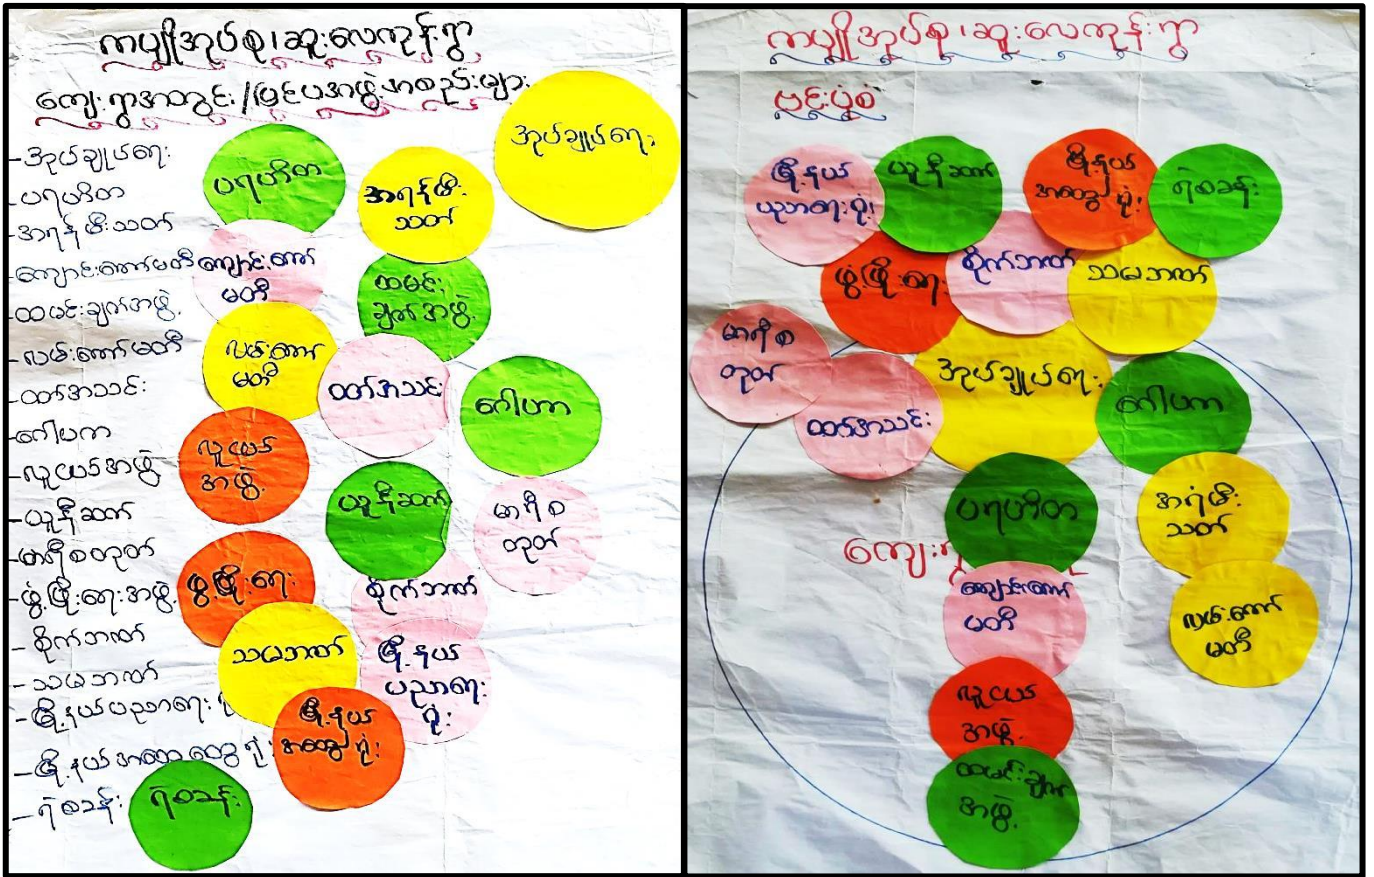 ကပျို့အုပ်စု၊ဆူးလေကုန်းရွာ
ကျေးရွာအတွင်း/ပြင်ပအဖွဲ့အစည်းများ
-အုပ်ချုပ်ရေး
-ပရဟိတ
-အရန်မီးသတ်
-ကျောင်းကော်မတီ
-ထမင်းချက်အဖွဲ့
-လမ်းကော်မတီ
-ထတ်အသင်း
-ဂေါပက
-လူငယ်အဖွဲ့
-ယူနီဆက်
-မာရီစတုတ်
-ဖွံ့ဖြိုးရေးအဖွဲ့
-စိုက်ဘဏ်
-သမဘဏ်
-မြို့နယ်ပညာရေး
-မြို့နယ်အထွေထွေရုံး
-ရဲစခန်း
အုပ်ချုပ်ရေး
ပရဟိတ
အရန်မီး
သတ်
ကျောင်းကော်
မတီ
ထမင်း
ချက်အဖွဲ့
လမ်းကော်
မတီ
ထတ်အသင်း
ဂေါပက
လူငယ်
အဖွဲ့
ယူနီဆက်
မာရီစ
တုတ်
ဖွံ့ဖြိုးရေး
စိုက်ဘဏ်
သမဘဏ်
မြို့နယ်
ပညာရေး
ရုံး
မြို့နယ်
အထွေရုံး
ရဲစခန်း
ကပျို့အုပ်စု၊ဆူးလေကုန်းရွာ
ဗင်းပုံစံ
မြို့နယ်
ပညာရေးရုံး
ယူနီဆက်
မြို့နယ်
အထွေရုံး
ရဲစခန်း
ဖွံ့ဖြိုးရေး
စိုက်ဘဏ်
သမဘဏ်
မာရီစ
တုတ်
ထတ်အသင်း
အုပ်ချုပ်ရေး
ဂေါပက
ပရဟိတ
အရံမီး
သတ်
ကျောင်းကော်
မတီ
လမ်းကော်
မတီ
လူငယ်
အဖွဲ့
ထမင်းချက်
အဖွဲ့